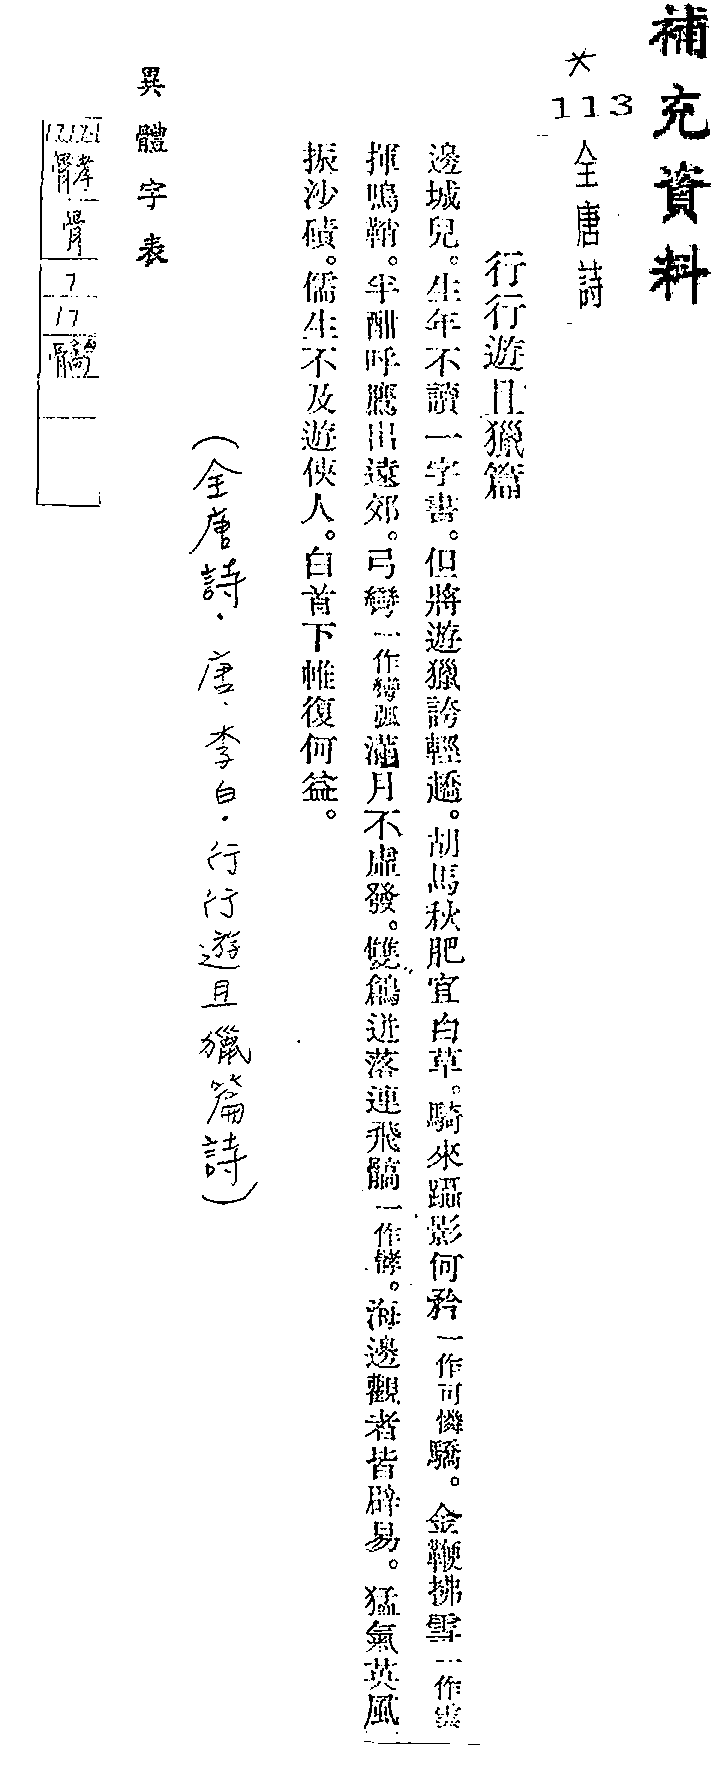 補充資料
*
113
全唐詩
行行遊且獵篇
邊城兒。生年不讀一字書。但將遊獵誇輕趫。胡馬秋肥宜白草。騎來躡影何矜一作可憐驕。金鞭拂雪一作雲
揮鳴鞘。半酣呼鷹出遠郊。弓彎一作彎弧滿月不虛發。雙鶬迸落連飛髇一作髉。海邊觀者皆辟易。猛氣英風
振沙磧。儒生不及遊俠人。白首下帷復何益。
(全唐詩．唐．李白．行行遊且獵篇詩)
異體字表
骨
7
17
髇